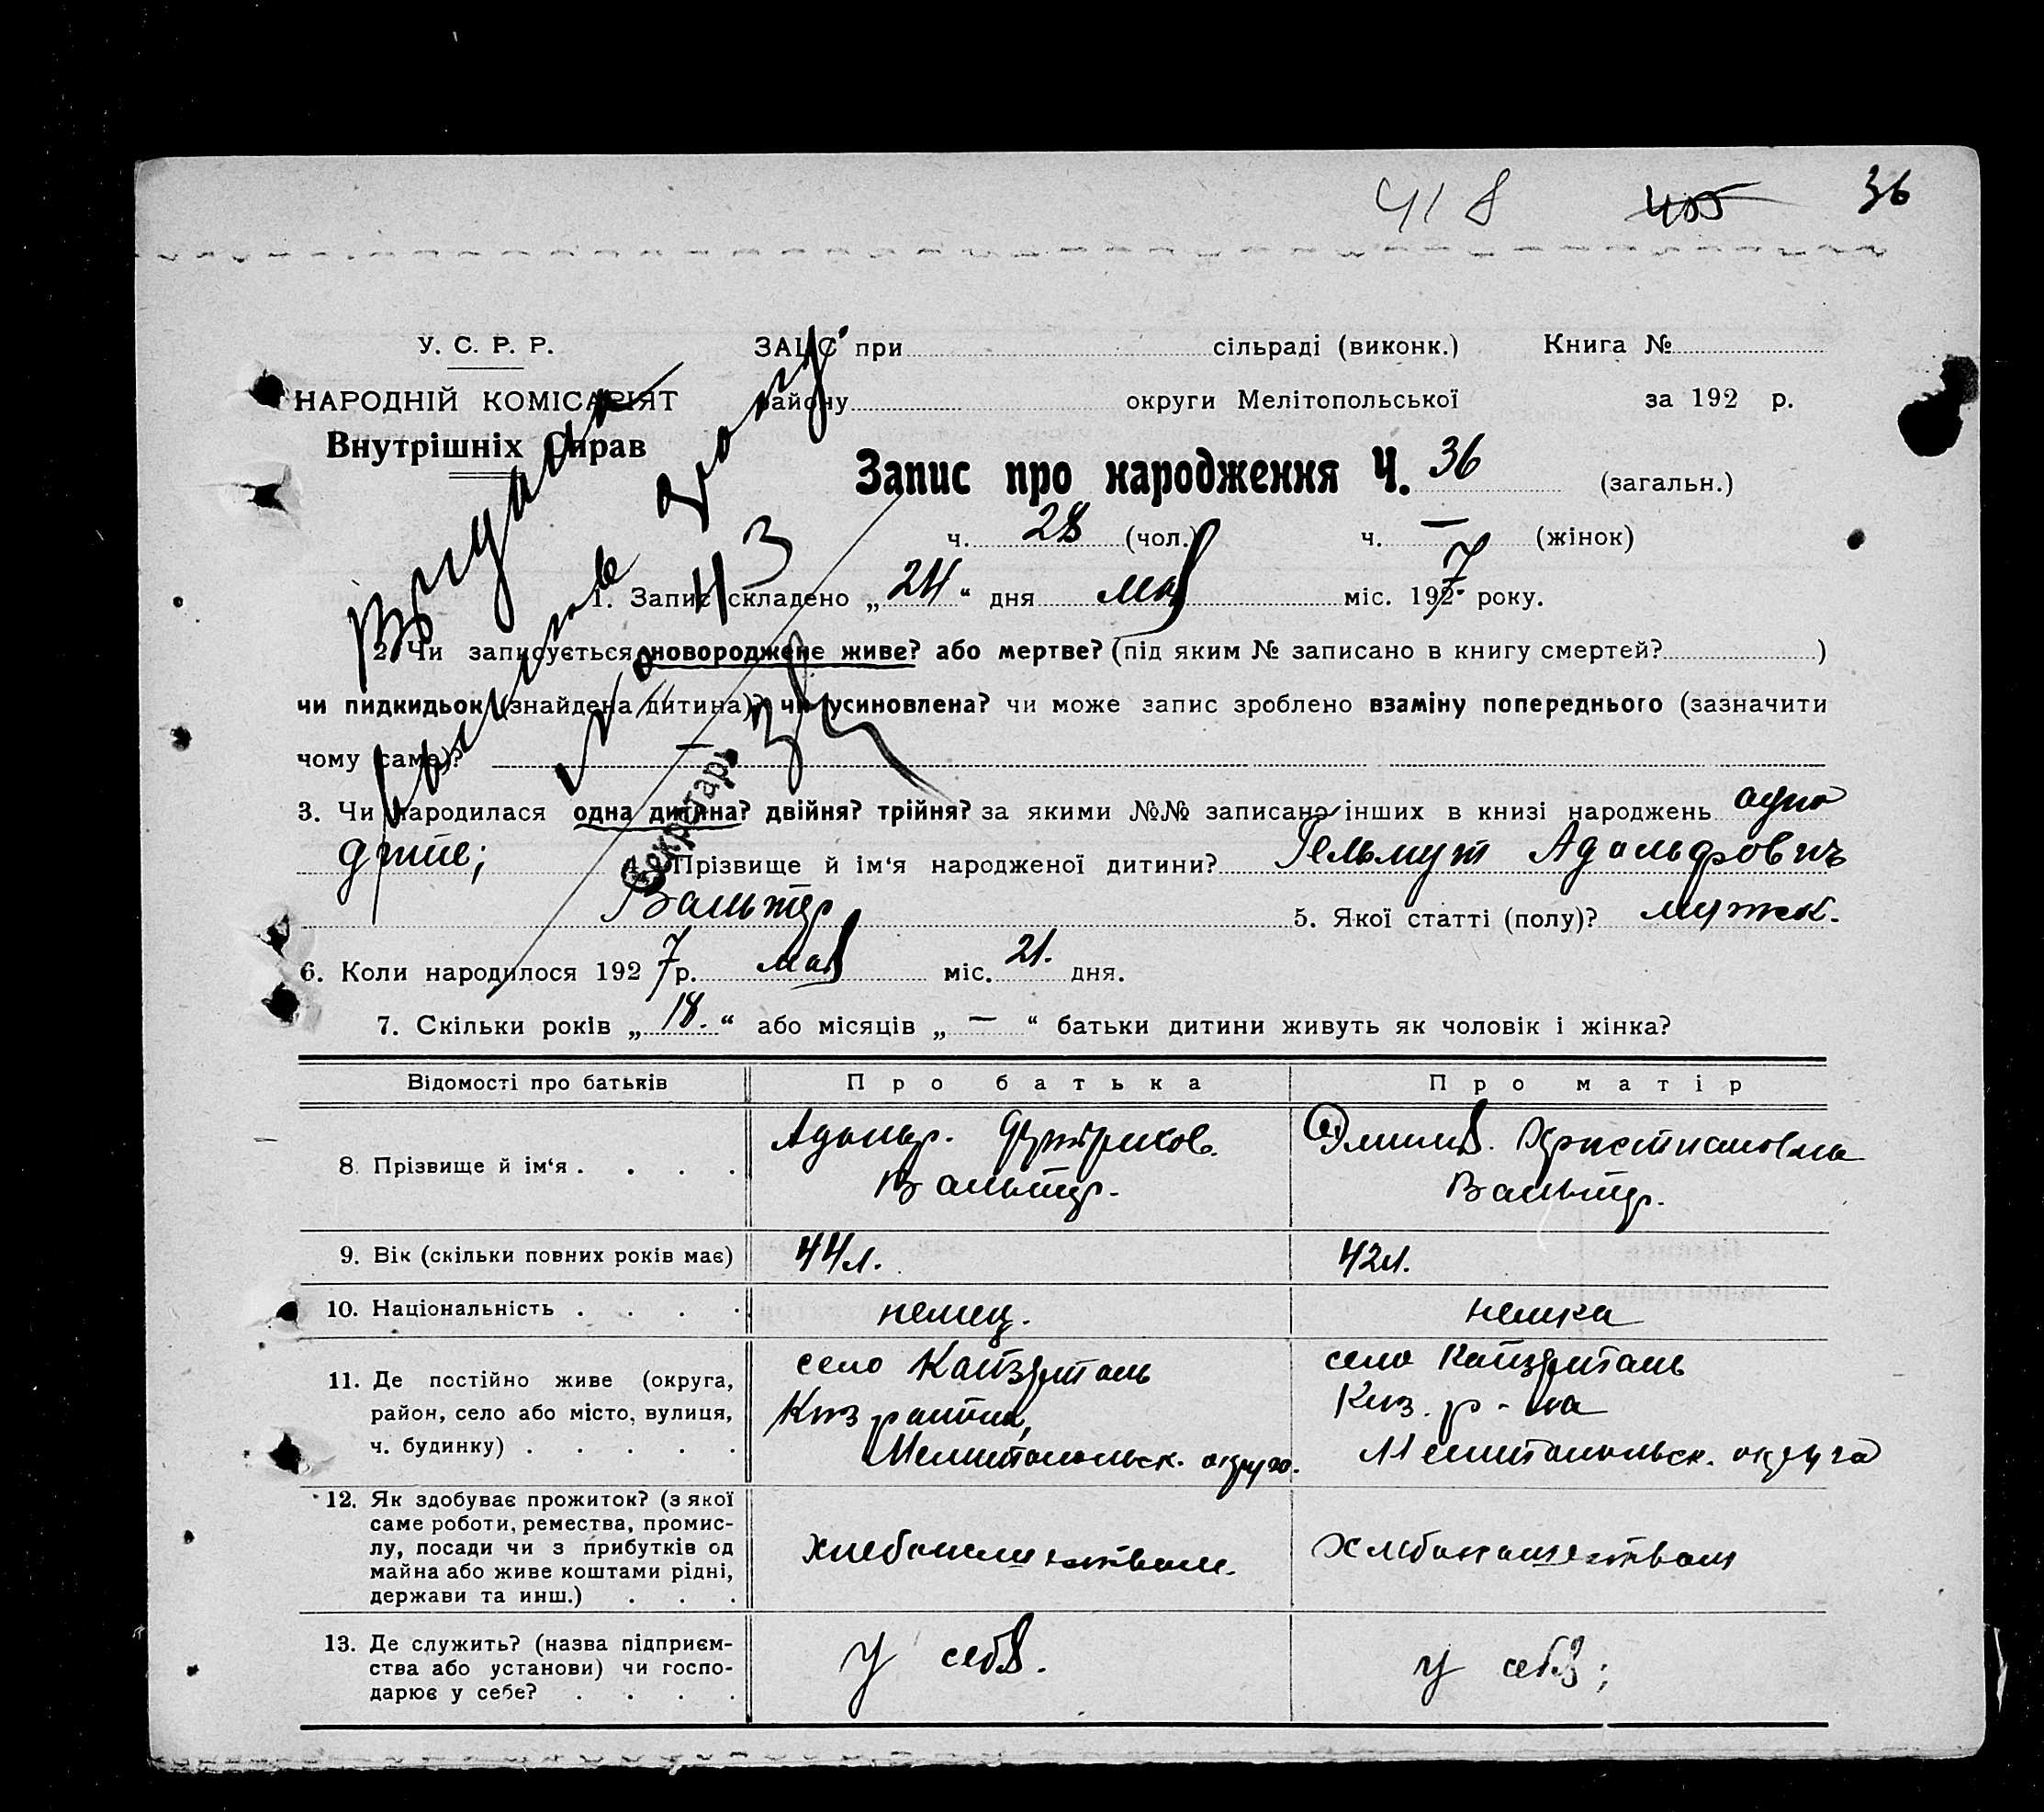 418 405 36
У. С. Р. Р. ЗАЦС при сільраді (виконк.) Книга №
НАРОДНІЙ КОМІСАРІЯТ району округи Мелітопольської за 192 р.
Внутрішніх Справ
Запис про народження Ч. 36 (загальн.)
ч. 28 (чол.) ч. — (жінок)
1. Запис складено „24“ дня мая міс. 1927 року.
2. Чи записується новороджене живе? або мертве? (під яким № записано в книгу смертей? )
чи пидкидьок (знайдена дитина)? чи усиновлена? чи може запис зроблено взаміну попереднього (зазначити
чому саме)? —
3. Чи народилася одна дитина? двійня? трійня? за якими №№ записано інших в книзі народжень одно
дите; 4. Прізвище й ім‘я народженої дитини? Гельмут Адольфовичъ
Вальтер 5. Якої статті (полу)? мужск.
6. Коли народилося 1927 р. мая міс. 21. дня.
7. Скільки років „18.“ або місяців „—“ батьки дитини живуть як чоловік і жінка?
Секретарь
Відомості про батьків Про батька Про матір
8. Прізвище й ім‘я . . . . Адольф. Фридрихов. Эмилия. Христиановна
Вальтер. Вальтер.
9. Вік (скільки повних років має) 44л. 42л.
10. Національність . . . . немец. немка
11. Де постійно живе (округа, село Кайзерталь село Кайзерталь
район, село або місто, вулиця, Киз. р-на
ч. будинку) . . . . . Мелитопольск. округа. Мелитопольск. округа
12. Як здобуває прожиток? (з якої
саме роботи, ремества, промис-
лу, посади чи з прибутків од хлебопашеством. хлебопашеством
майна або живе коштами рідні,
держави та инш.) . . .
13. Де служить? (назва підприєм- у себя. у себя;
ства або установи) чи госпо-
дарює у себе? . . . .